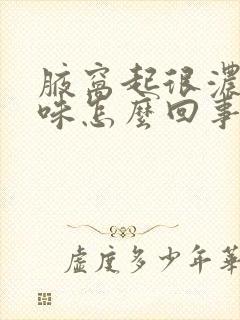 腋窩起很濃
味怎麼回事
虛度多少年華